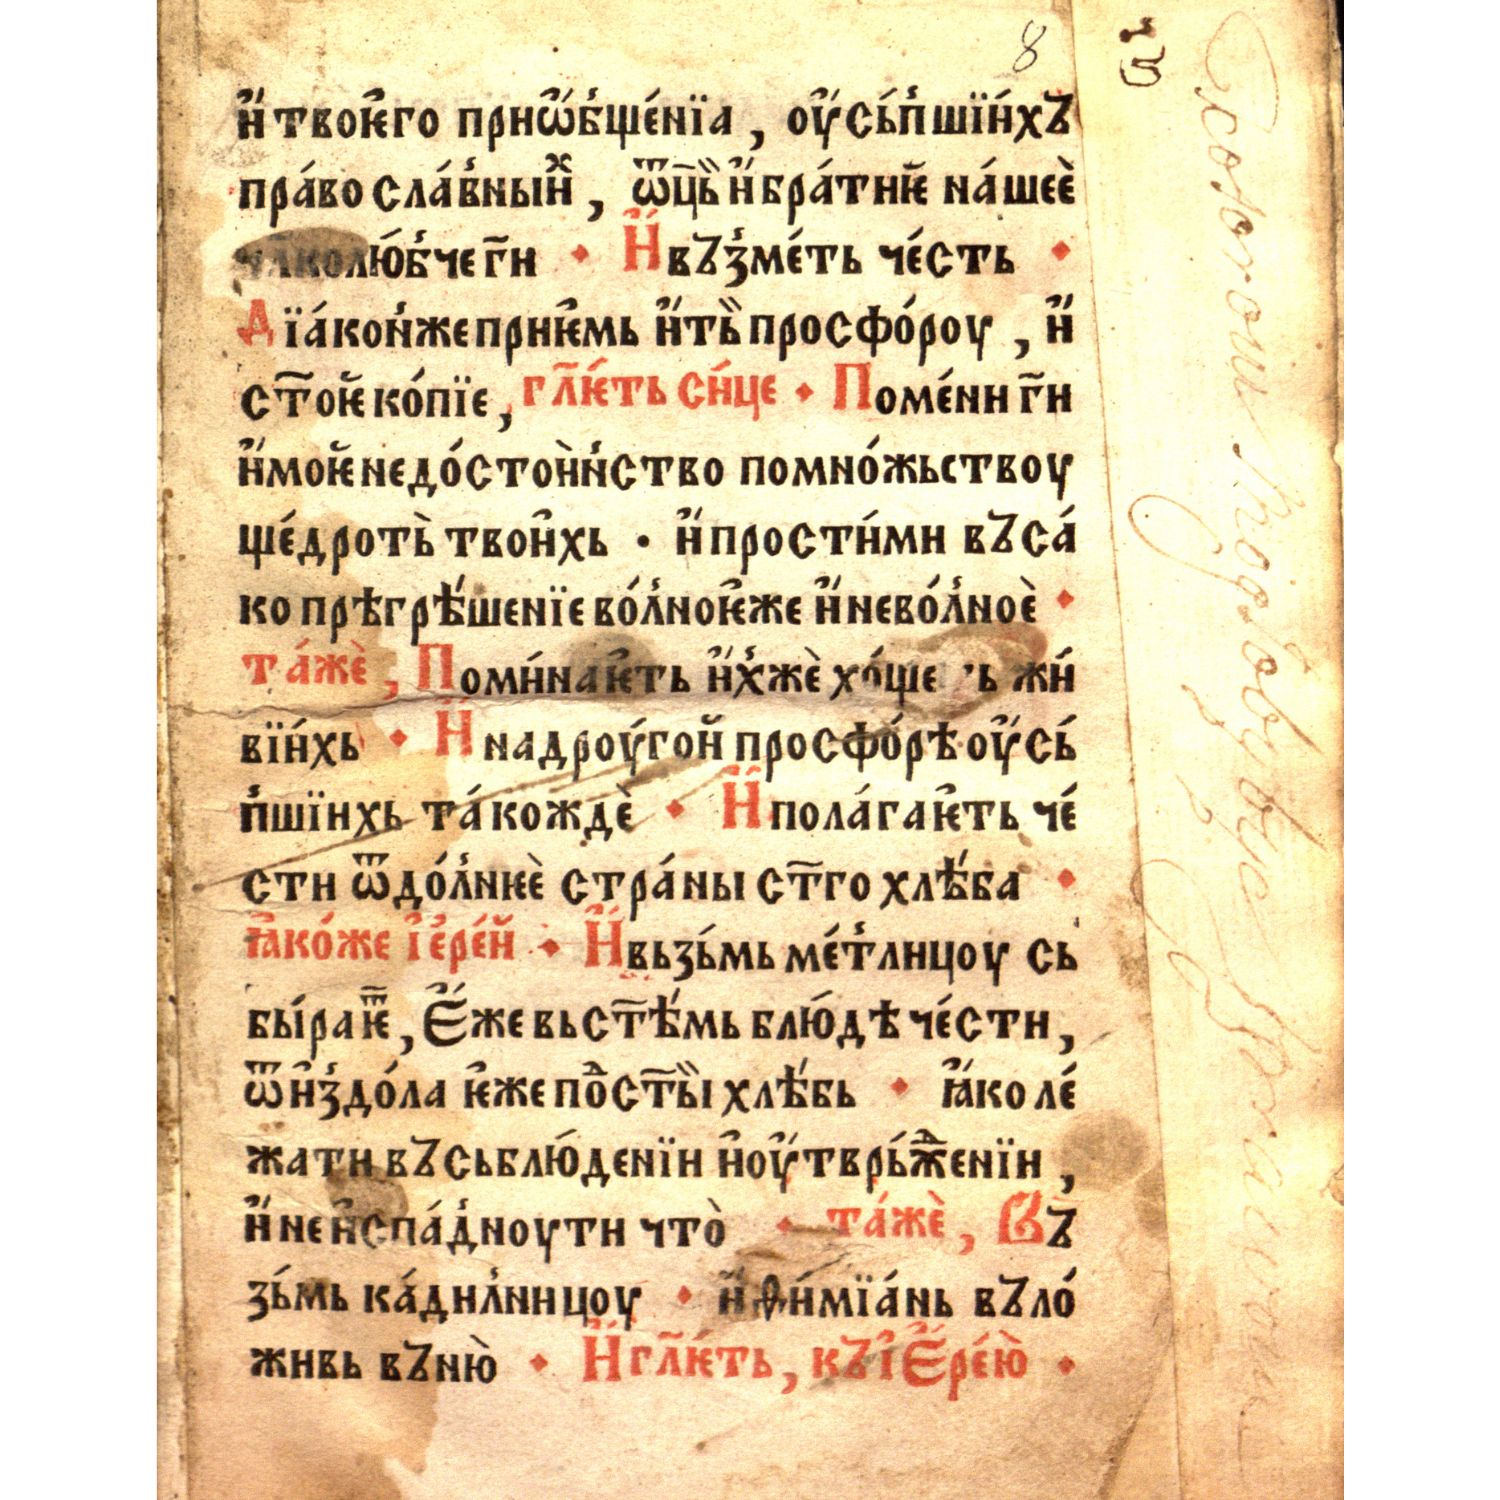 8
и҆̀ твоѥ҆го прию҆бще́нїа, оу҆сь́пшїи́хъ
пра́вославныи҆х, ѿц҃ь и҆̀ бра́тиѥ на́шеѐ
чл҃колю́бче г҃и ⬥ И҆̀ въꙁме́ть че́сть ⬥
Дїа́кон же приѥ҆мь и҆̀ ть̏ просфо́роу, и҆̀
ст҃оѥ ко́пїе, гл҃ѥ́ть си́це ⬥ Поме́ни г҃и
и҆̀ моѥ недо́стоѝнство помно́жьствоу
ще́дроть̀ твои҆хь · и҆̀ прости́ми въса́
ко прѣгрѣ́шенїе во́лноѥ҆же и҆̀ нево́лноѐ ⬥
та́жѐ, Поми́наѥ҆ть и҆̀хжѐ жи́
вїи́хь ⬥ И҆̀ надроу́гой просфо́рѣ оу҆сь́
пшїихь та́кождѐ ⬥ И҆̀ пола́гаѥ҆ть че́
сти ѿдо́лнѥѐ стра́ны ст҃го хлѣ́ба ⬥
ꙗ҆ко́же і҆е҆ре́й ⬥ И҆̀ вьꙁь́мь ме́тлицоу сь
бы́раѥⷮ, Є҆́же вьст҃ѣ́мь блю́дѣ че́сти,
ѿи҆ꙁдо́ла ѥ҆же поⷣст҃ы̏ хлѣ́бь ⬥ ꙗ҆̀ко ле́
жати въсьблю́денїи и҆оу҆твръ́жⷣенїи,
и҆̀ не и҆спа́дноути что̀ ⬥ та́жѐ, Въ
ꙁь́мь ка́дилницоу ⬥ и҆̀ ѳи́мїа́нь въло́
живь въню̀ ⬥ И҆̀ гл҃ѥ́ть, къ і҆Є҆ре́ю̀ ⬥